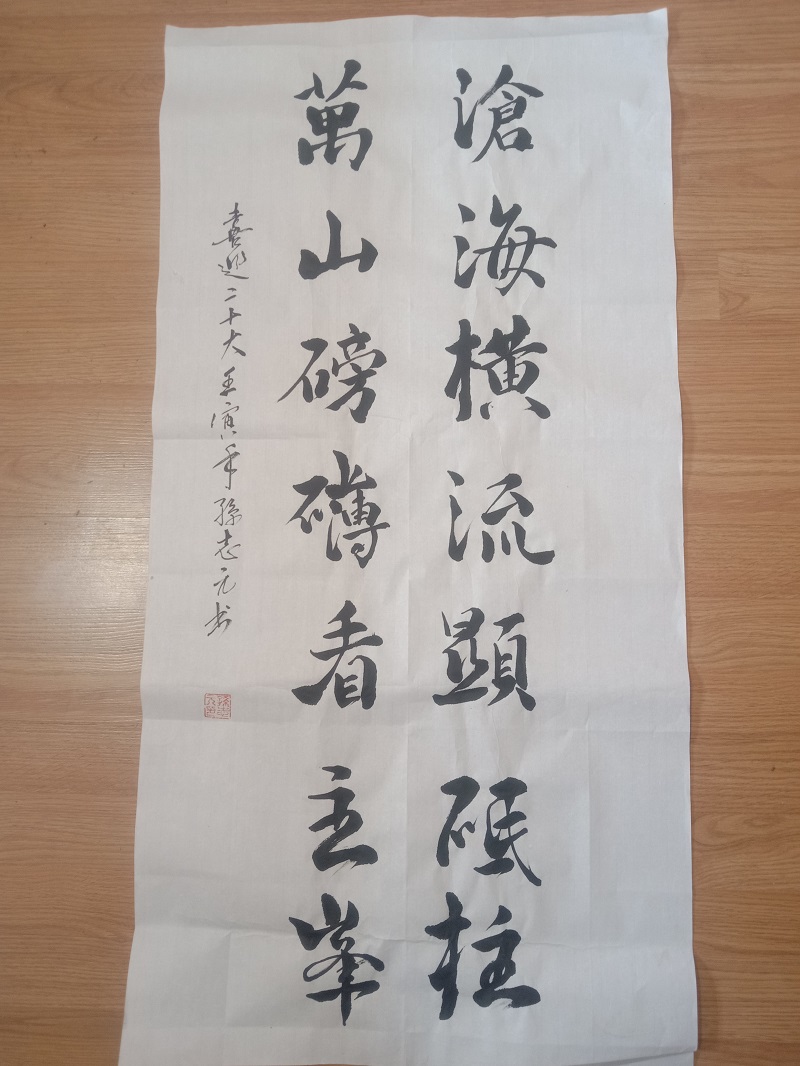 滄海橫流顯砥柱
萬山磅礴看主峯
喜迎二十大 壬寅年 孫志元书